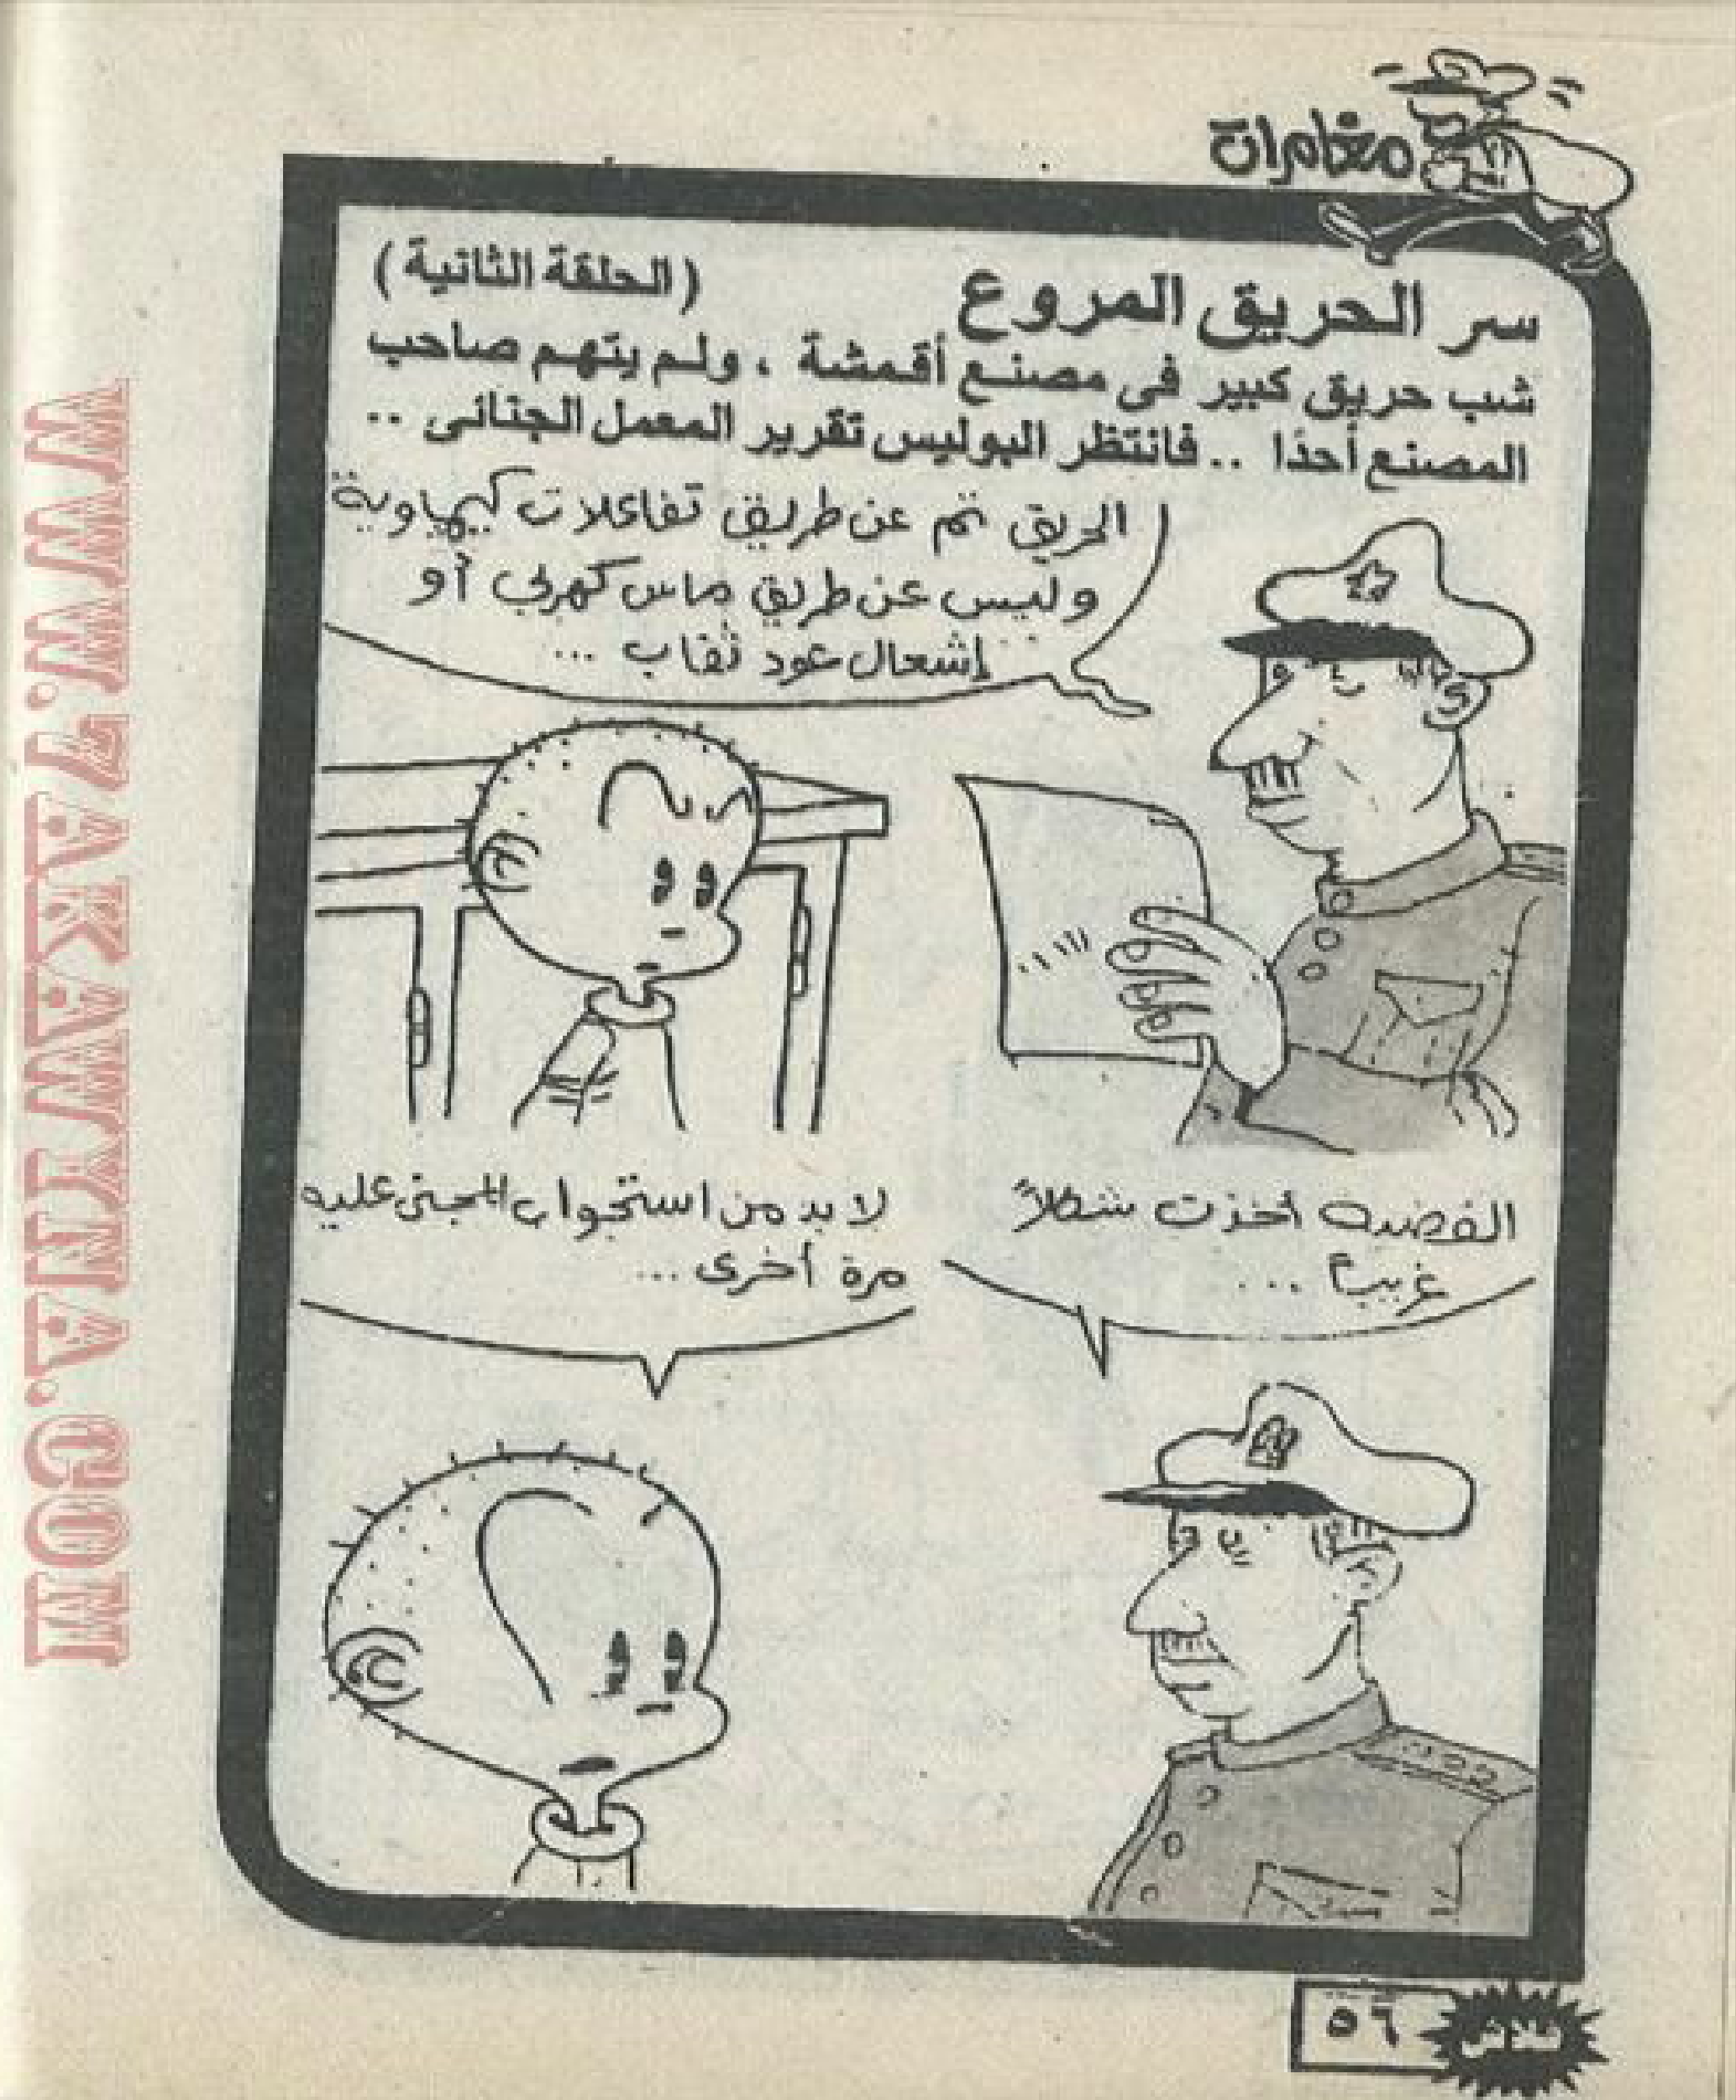 مغامرات
سر الحريق المروع
(الحلقة الثانية)
شب حريق كبير فى مصنع أقمشة ، ولم يتهم صاحب
المصنع أحدًا .. فانتظر البوليس تقرير المعمل الجنائى ..
الحريق تم عن طريق تفاعلات كيماوية
وليس عن طريق ماس كهربي أو
إشعال عود ثقاب ...
القضيه أخذت شكلاً
غريبا ...
لابد من استجواب المجنى عليه
مرة أخرى ...
٥٦
فلاش
WWW.7AKAWEENA.COM